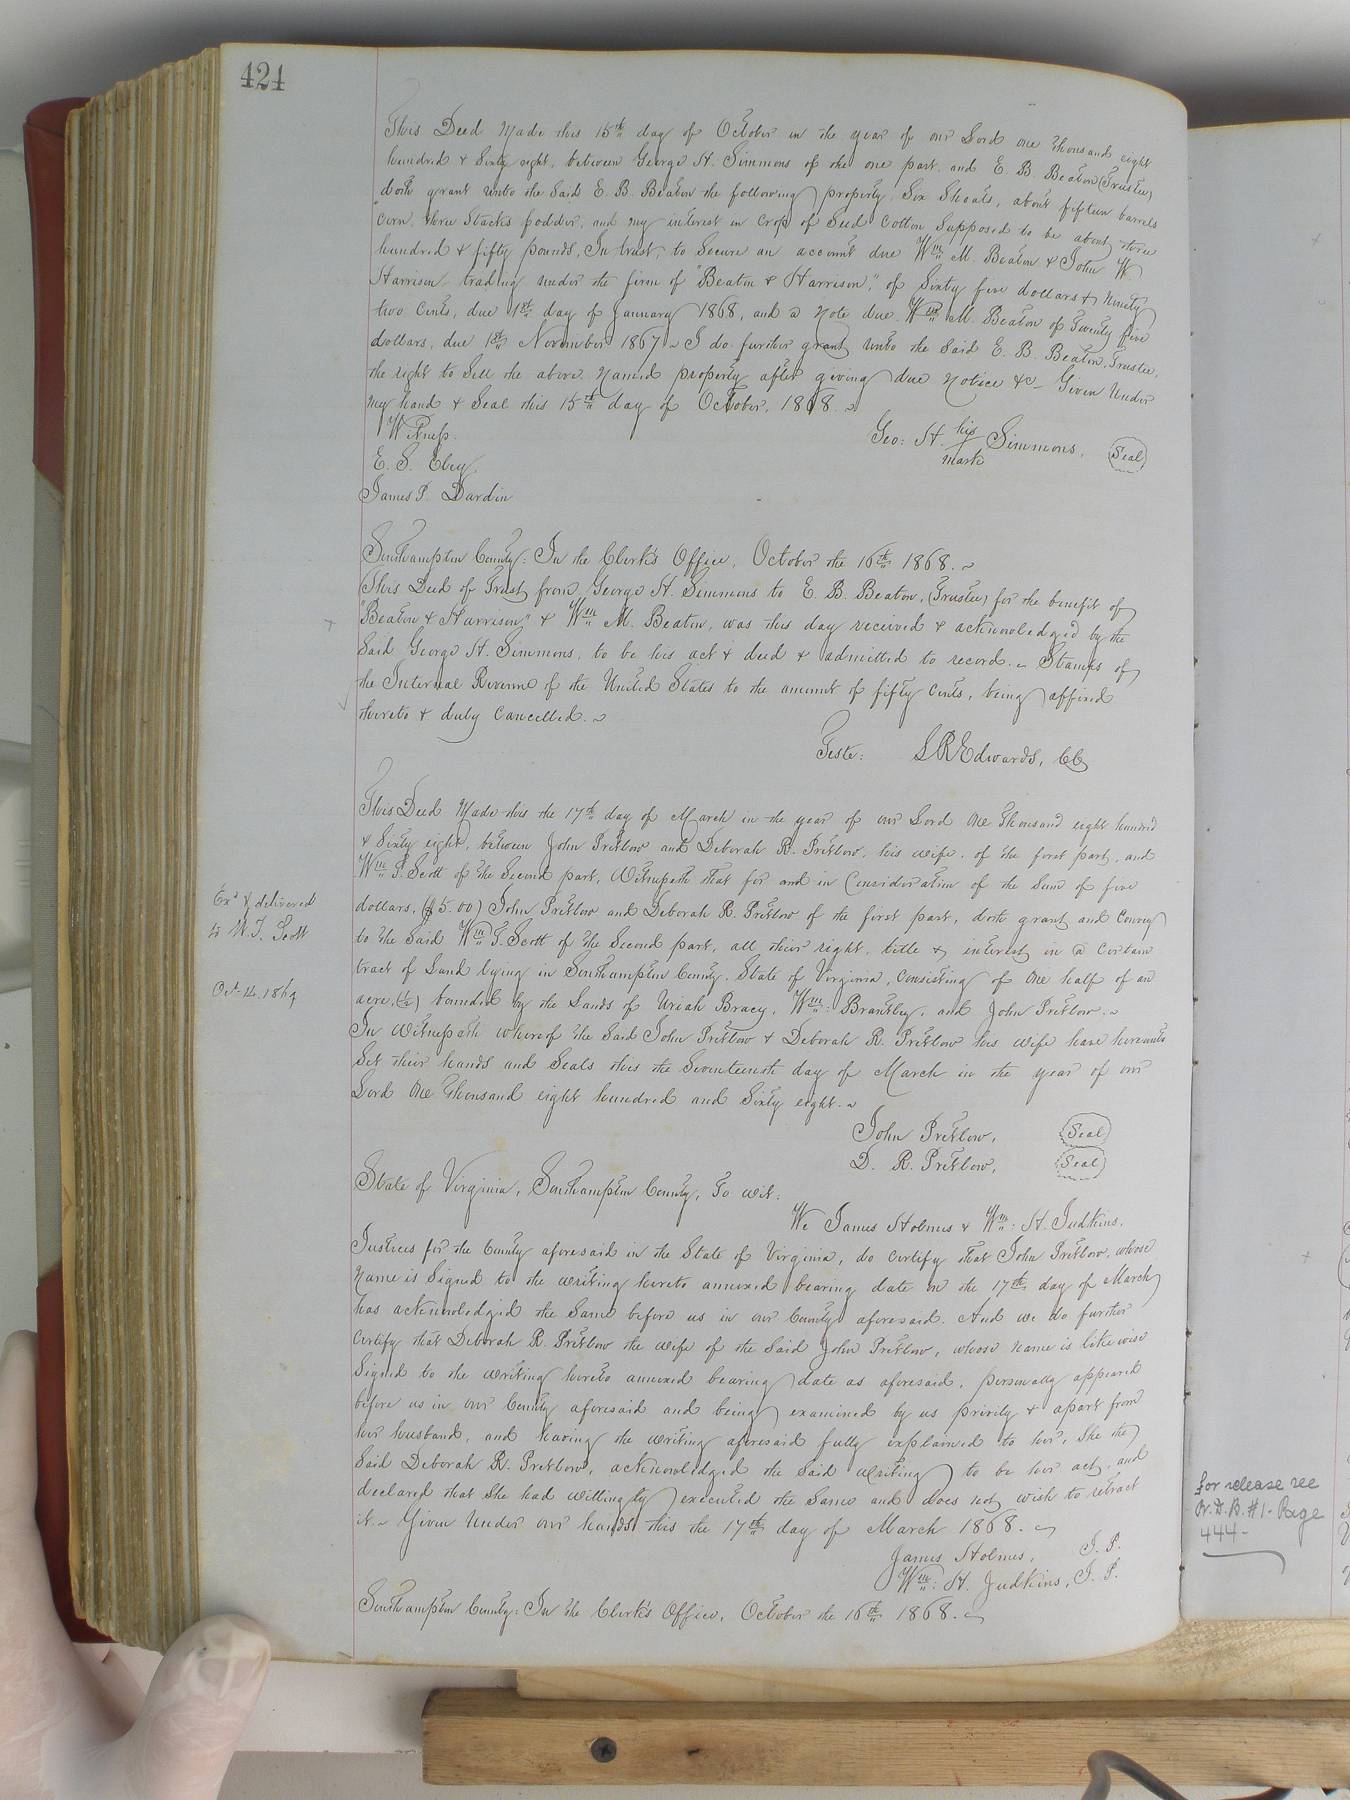 424
This Deed Made this 15th day of October in the year of our Lord one thousand eight
hundred & Sixty eight, between George H. Simmons of the one part, and E. B. Beaton (Trustee)
doth grant unto the Said E. B. Beaton the following property, Six Shoats, about fifteen barrels
corn, three Stacks fodder, and my interest in Crop of Seed Cotton Supposed to be about three
hundred & fifty pounds, In trust, to Secure an account due Wm M. Beaton & John W
Harrison trading under the firm of "Beaton & Harrison," of Sixty five dollars & Ninety
two Cents, due 1st day of January 1868, and a Note due Wm M. Beaton of Twenty five
dollars, due 1st November 1867 ~ I do further grant unto the Said E. B. Beaton, Trustee,
the right to Sell the above Named property after giving due Notice &c - Given Under
my hand & Seal this 15th day of October, 1868. ~
Witness.
Geo: H. his Simmons, Seal
mark
E. S.
James P. Dardin
Southampton County: In the Clerk's Office, October the 16th 1868. ~
This Deed of Trust from George H. Simmons to E. B. Beaton, (Trustee) for the benefit of
"Beaton & Harrison" & Wm M. Beaton, was this day received & acknowledged by the
Said George H. Simmons, to be his act & deed & admitted to record. ~ Stamps of
the Internal Revenue of the United States to the amount of fifty Cents, being affixed
thereto & duly Cancelled. ~
Teste: L R Edwards, CC
This Deed Made this the 17th day of March in the year of our Lord One Thousand eight hundred
& Sixty eight, between John Pretlow and Deborah R. Pretlow, his wife, of the first part, and
Wm T. Scott of the Second part, Witnesseth that for and in Consideration of the Sum of five
Exd & delivered
to W. T. Scott
Oct. 14. 1869
dollars, ($5.00) John Pretlow and Deborah R. Pretlow of the first part, doth grant and Convey
to the Said Wm T. Scott of the Second part, all their right, title & interest in a Certain
tract of Land lying in Southampton County, State of Virginia, Consisting of One half of an
acre, (½) bounded by the Lands of Uriah Bracy, Wm: Brantley, and John Pretlow. ~
In Witnesseth whereof the Said John Pretlow & Deborah R. Pretlow his wife have hereunto
Set their hands and Seals this the Seventeenth day of March in the year of our
Lord One Thousand eight hundred and Sixty eight. ~
John Pretlow, Seal
D. R. Pretlow, Seal
State of Virginia, Southampton County, To wit:
We James Holmes & Wm: H. Judkins,
Justices for the County aforesaid in the State of Virginia, do Certify that John Pretlow, whose
Name is Signed to the writing hereto annexed bearing date on the 17th day of March
has acknowledged the Same before us in our County aforesaid. And we do further
Certify that Deborah R. Pretlow the wife of the Said John Pretlow, whose Name is likewise
Signed to the writing hereto annexed bearing date as aforesaid, personally appeared
before us in our County aforesaid and being examined by us privily & apart from
her husband, and having the writing aforesaid fully explained to her, She the
Said Deborah R. Pretlow, acknowledged the Said writing to be her act, and
declared that She had willingly executed the Same and does not wish to retract
it. ~ Given Under our hands this the 17th day of March 1868. ~
James Holmes, J. P.
Wm: H. Judkins, J. P.
Southampton County: In the Clerk's Office, October the 16th 1868. ~
for release see
Or. D. B. #1 - Page
444 -